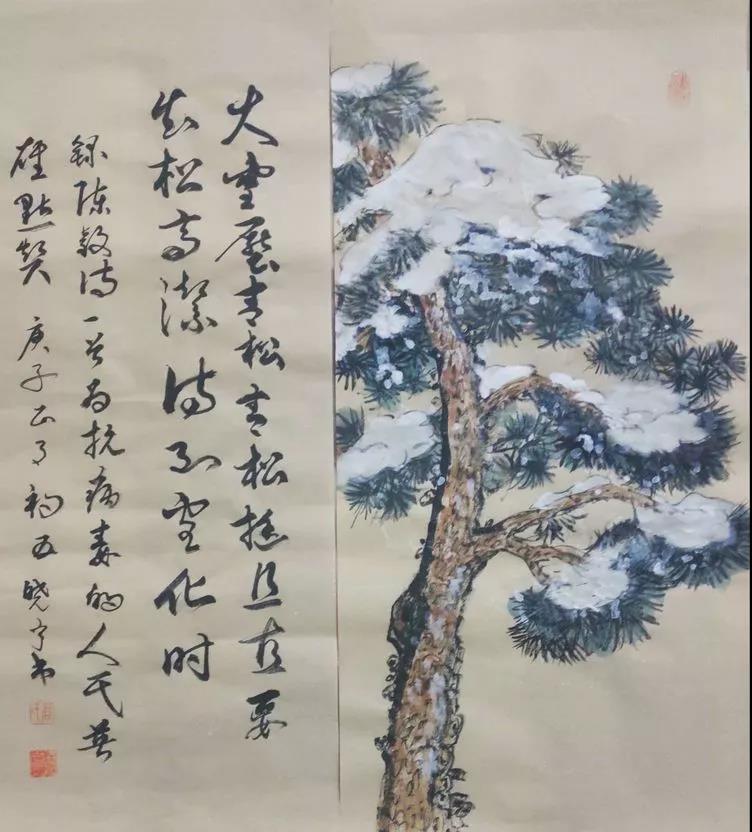 大雪压青松青松挺且直要
知松高洁待到雪化时
録陈毅诗一首为抗病毒的人民英
雄点赞 庚子正月初五晓宁书